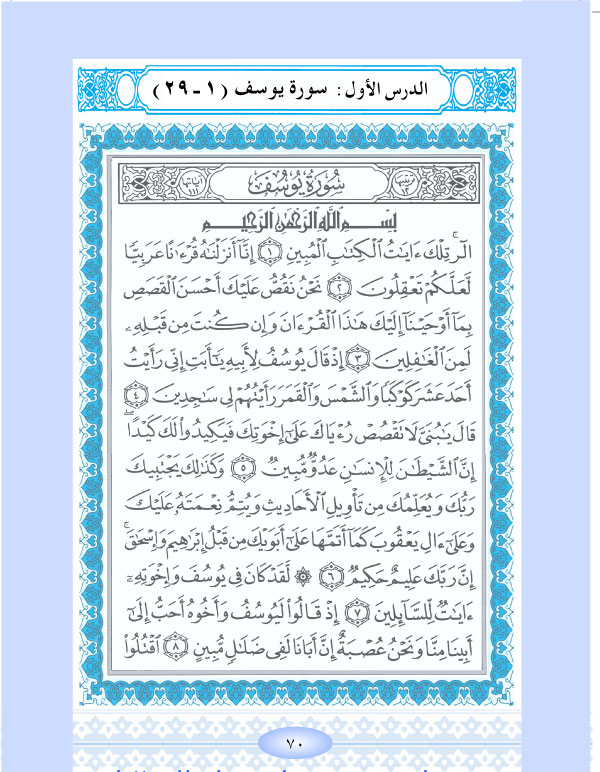 الدرس الأول: سورة يوسف (١ - ٢٩)
آياتها ١١١ سُورَةُ يُوسُفَ
بِسْمِ اللَّهِ الرَّحْمَٰنِ الرَّحِيمِ
الٓر ۚ تِلْكَ ءَايَٰتُ ٱلْكِتَٰبِ ٱلْمُبِينِ ۝١ إِنَّآ أَنزَلْنَٰهُ قُرْءَٰنًا عَرَبِيًّا
لَّعَلَّكُمْ تَعْقِلُونَ ۝٢ نَحْنُ نَقُصُّ عَلَيْكَ أَحْسَنَ ٱلْقَصَصِ
بِمَآ أَوْحَيْنَآ إِلَيْكَ هَٰذَا ٱلْقُرْءَانَ وَإِن كُنتَ مِن قَبْلِهِۦ
لَمِنَ ٱلْغَٰفِلِينَ ۝٣ إِذْ قَالَ يُوسُفُ لِأَبِيهِ يَٰٓأَبَتِ إِنِّى رَأَيْتُ
أَحَدَ عَشَرَ كَوْكَبًا وَٱلشَّمْسَ وَٱلْقَمَرَ رَأَيْتُهُمْ لِى سَٰجِدِينَ ۝٤
قَالَ يَٰبُنَىَّ لَا تَقْصُصْ رُءْيَاكَ عَلَىٰٓ إِخْوَتِكَ فَيَكِيدُوا۟ لَكَ كَيْدًا ۖ
إِنَّ ٱلشَّيْطَٰنَ لِلْإِنسَٰنِ عَدُوٌّ مُّبِينٌ ۝٥ وَكَذَٰلِكَ يَجْتَبِيكَ
رَبُّكَ وَيُعَلِّمُكَ مِن تَأْوِيلِ ٱلْأَحَادِيثِ وَيُتِمُّ نِعْمَتَهُۥ عَلَيْكَ
وَعَلَىٰٓ ءَالِ يَعْقُوبَ كَمَآ أَتَمَّهَا عَلَىٰٓ أَبَوَيْكَ مِن قَبْلُ إِبْرَٰهِيمَ وَإِسْحَٰقَ ۚ
إِنَّ رَبَّكَ عَلِيمٌ حَكِيمٌ ۝٦ ۞ لَّقَدْ كَانَ فِى يُوسُفَ وَإِخْوَتِهِۦٓ
ءَايَٰتٌ لِّلسَّآئِلِينَ ۝٧ إِذْ قَالُوا۟ لَيُوسُفُ وَأَخُوهُ أَحَبُّ إِلَىٰٓ
أَبِينَا مِنَّا وَنَحْنُ عُصْبَةٌ إِنَّ أَبَانَا لَفِى ضَلَٰلٍ مُّبِينٍ ۝٨ ٱقْتُلُوا۟
٧٠